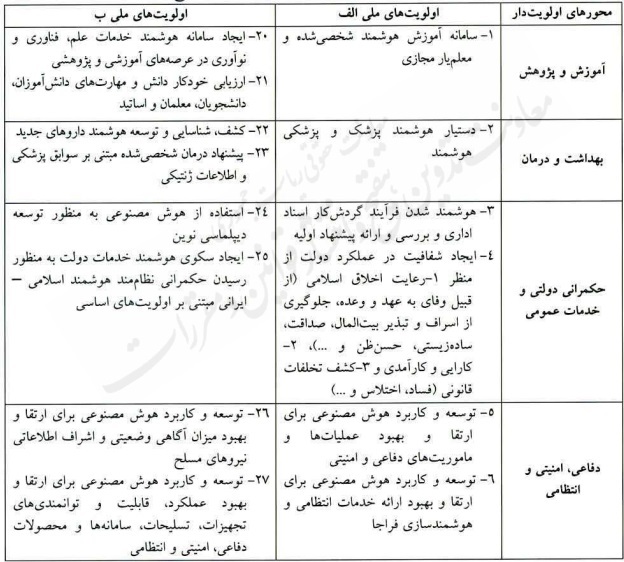 محورهای اولویت‌دار
اولویت‌های ملی الف
اولویت‌های ملی ب
آموزش و پژوهش
۱- سامانه آموزش هوشمند شخصی‌شده و
معلم‌یار مجازی
۲۰- ایجاد سامانه هوشمند خدمات علم، فناوری و
نوآوری در عرصه‌های آموزشی و پژوهشی
۲۱- ارزیابی خودکار دانش و مهارت‌های دانش‌آموزان،
دانشجویان، معلمان و اساتید
بهداشت و درمان
۲- دستیار هوشمند پزشک و پزشکی
هوشمند
۲۲- کشف، شناسایی و توسعه هوشمند داروهای جدید
۲۳- پیشنهاد درمان شخصی‌شده مبتنی بر سوابق پزشکی
و اطلاعات ژنتیکی
حکمرانی دولتی و
خدمات عمومی
۳- هوشمند شدن فرآیند گردش‌کار اسناد
اداری و بررسی و ارائه پیشنهاد اولیه
۴- ایجاد شفافیت در عملکرد دولت از
منظر ۱-رعایت اخلاق اسلامی (از
قبیل وفای به عهد و وعده، جلوگیری
از اسراف و تبذیر بیت‌المال، صداقت،
ساده‌زیستی، حسن‌ظن و ...)، ۲-
کارایی و کارآمدی و ۳-کشف تخلفات
قانونی (فساد، اختلاس و ...)
۲۴- استفاده از هوش مصنوعی به منظور توسعه
دیپلماسی نوین
۲۵- ایجاد سکوی هوشمند خدمات دولت به منظور
رسیدن حکمرانی نظام‌مند هوشمند اسلامی –
ایرانی مبتنی بر اولویت‌های اساسی
دفاعی، امنیتی و
انتظامی
۵- توسعه و کاربرد هوش مصنوعی برای
ارتقا و بهبود عملیات‌ها و
ماموریت‌های دفاعی و امنیتی
۶- توسعه و کاربرد هوش مصنوعی برای
ارتقا و بهبود ارائه خدمات انتظامی و
هوشمندسازی فراجا
۲۶- توسعه و کاربرد هوش مصنوعی برای ارتقا و
بهبود میزان آگاهی وضعیتی و اشراف اطلاعاتی
نیروهای مسلح
۲۷- توسعه و کاربرد هوش مصنوعی برای ارتقا و
بهبود عملکرد، قابلیت و توانمندی‌های
تجهیزات، تسلیحات، سامانه‌ها و محصولات
دفاعی، امنیتی و انتظامی